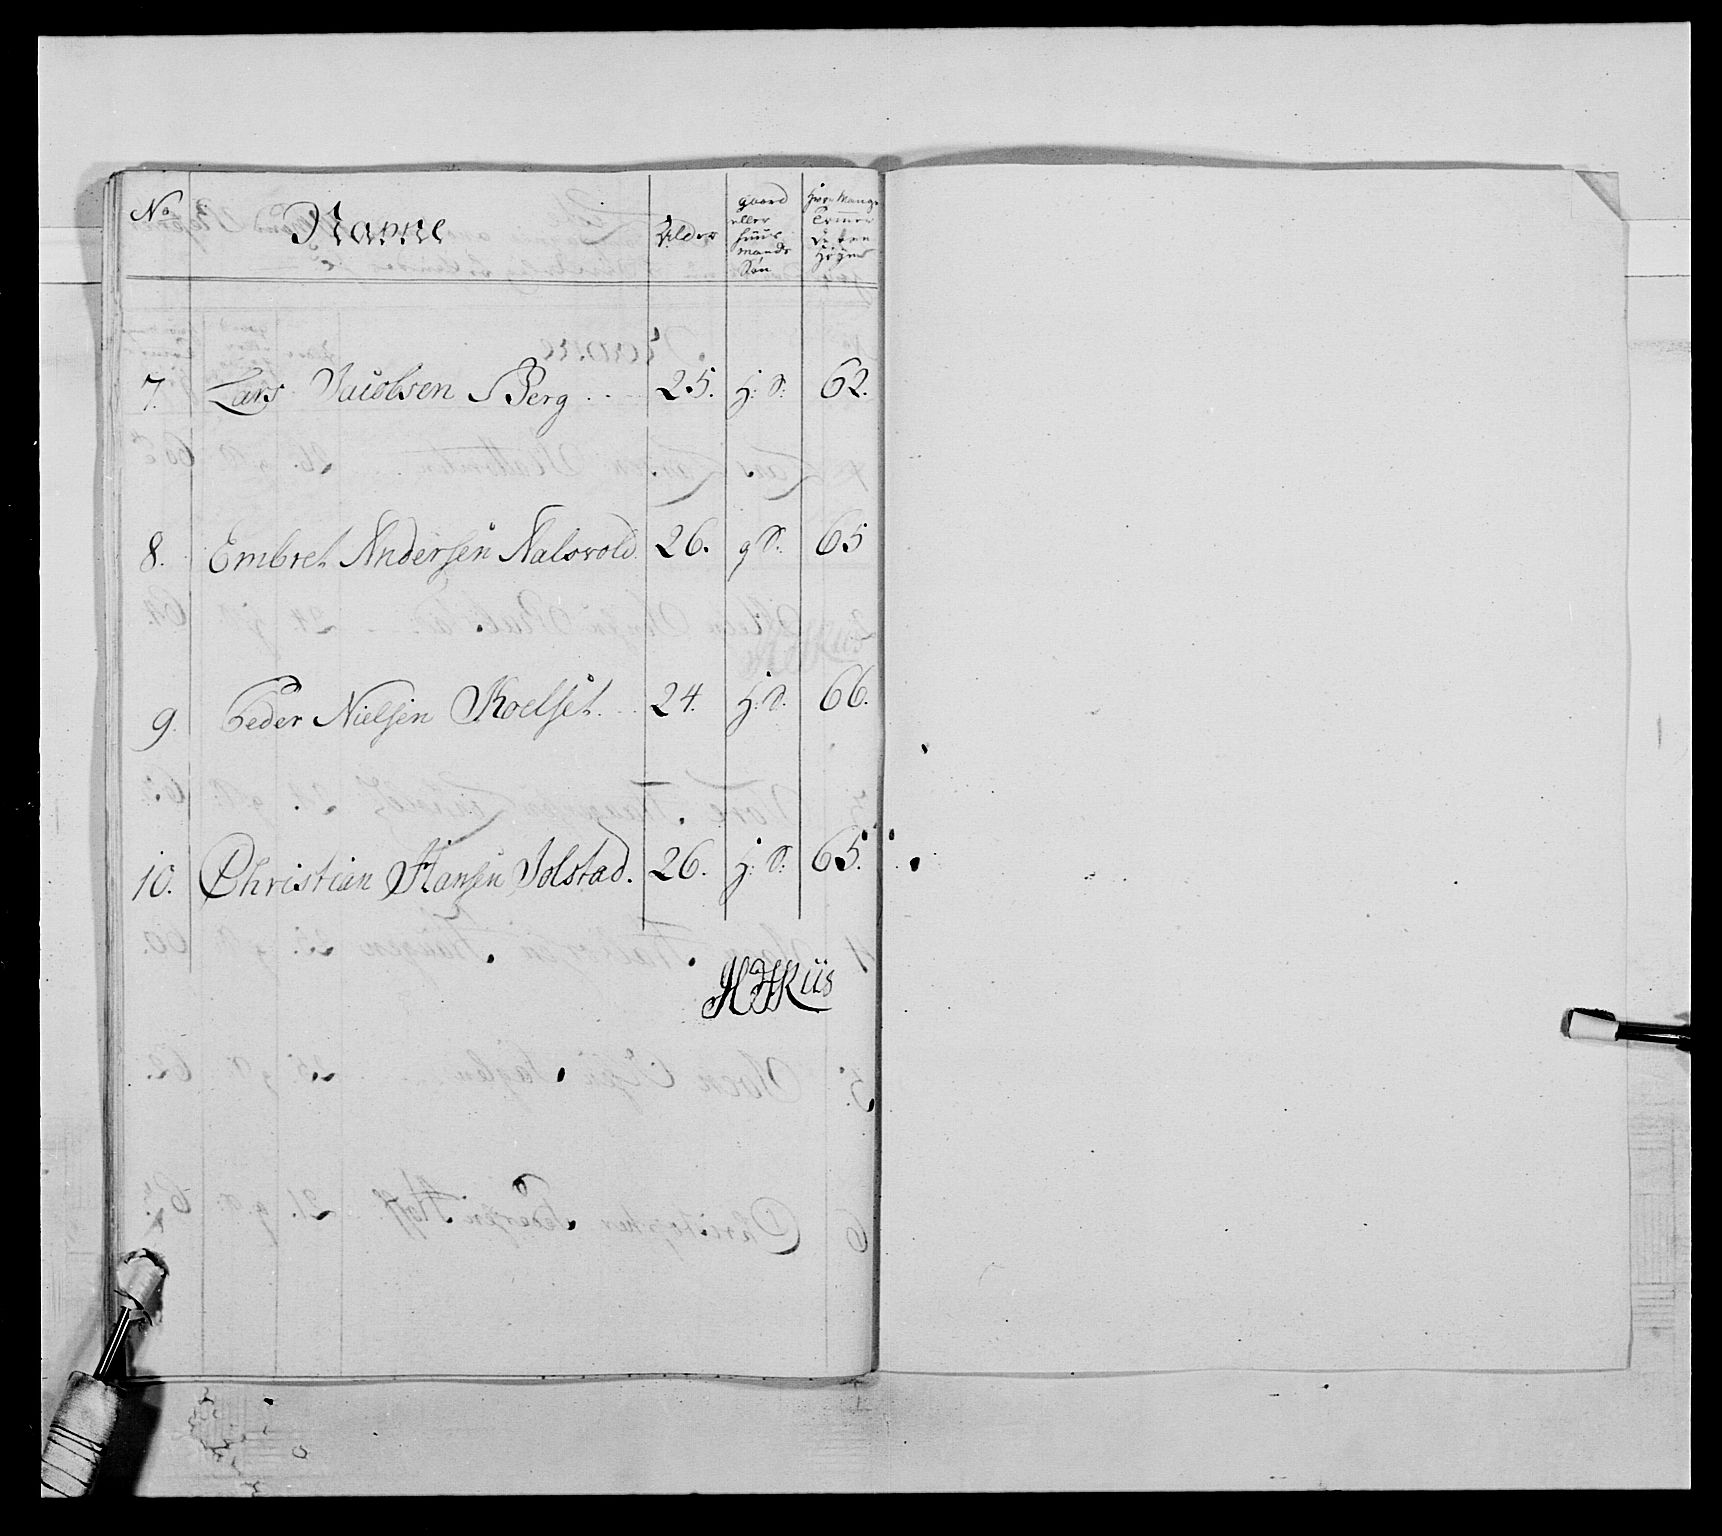 No
Navne
Alder
gaard
eller
huus
mands
Søn
Hvor Mange
Tommer
de ere
Høye
7. Lars Jacobsen Berg 25. h: S: 62.
8. Embret Andersen Nalsvold 26. g S: 65
9. Peder Nielsen Roelset 24. h: S: 66.
10. Christian Hansen Jolstad. 26. h: S: 65.
Riis